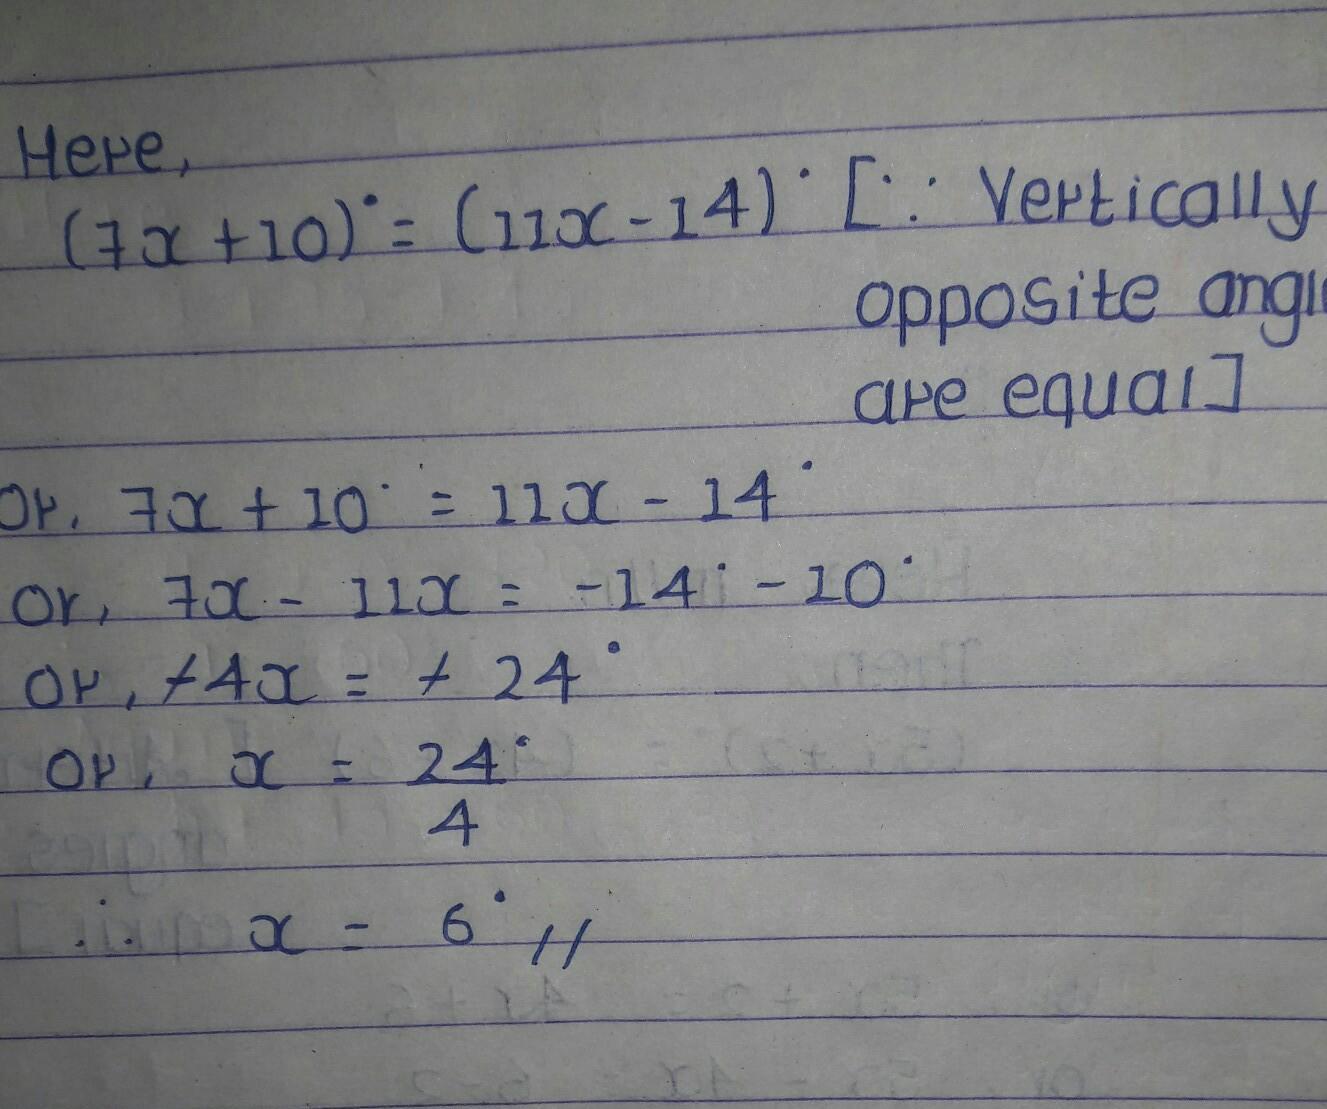 Here,
(7x + 10)° = (11x - 14)° [∵ Vertically
opposite
are equal]
or, 7x + 10° = 11x - 14°
or, 7x - 11x = -14° - 10°
or, -4x = - 24°
or, x = 24°
4
∴ x = 6° //